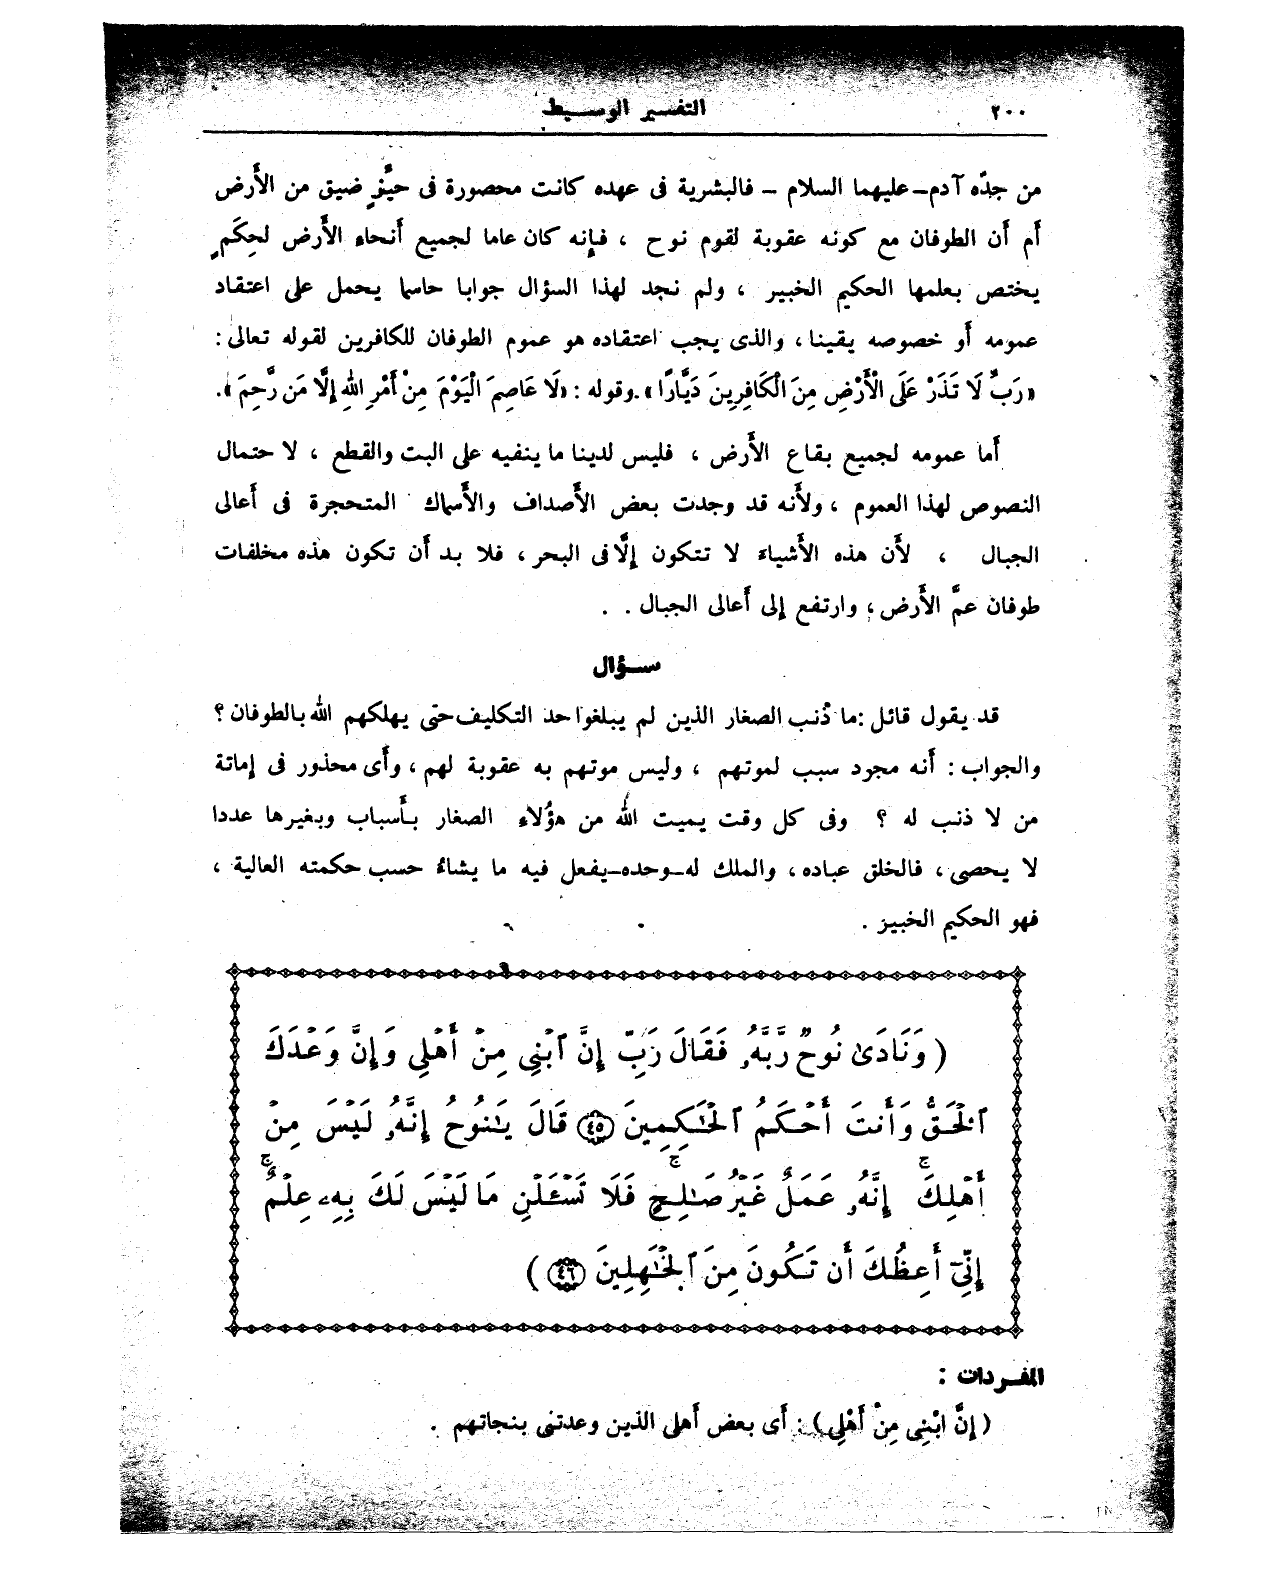 ٢٠٠
التفسير الوسيط
من جدّه آدم - عليهما السلام - فالبشرية فى عهده كانت محصورة فى حيِّزٍ ضيق من الأَرض
أم أن الطوفان مع كونه عقوبة لقوم نوح ، فإِنه كان عاما لجميع أَنحاء الأَرض لحِكَمٍ
يختص بعلمها الحكيم الخبير ، ولم نجد لهذا السؤال جوابا حاسما يحمل على اعتقاد
عمومه أَو خصوصه يقينا ، والذى يجب اعتقاده هو عموم الطوفان للكافرين لقوله تعالى :
«رَبِّ لَا تَذَرْ عَلَى الْأَرْضِ مِنَ الْكَافِرِينَ دَيَّارًا» . وقوله : «لَا عَاصِمَ الْيَوْمَ مِنْ أَمْرِ اللهِ إِلَّا مَن رَّحِمَ» .
أَما عمومه لجميع بقاع الأَرض ، فليس لدينا ما ينفيه على البت والقطع ، لاحتمال
النصوص لهذا العموم ، ولأَنه قد وجدت بعض الأَصداف والأَسماك المتحجرة فى أَعالى
الجبال ، لأَن هذه الأَشياءَ لا تتكون إِلَّا فى البحر ، فلا بد أَن تكون هذه مخلفات
طوفان عمَّ الأَرض ، وارتفع إلى أَعالى الجبال . .
سـؤال
قد يقول قائل : ما ذَنب الصغار الذين لم يبلغوا حد التكليف حتى يهلكهم الله بالطوفان ؟
والجواب : أَنه مجرد سبب لموتهم ، وليس موتهم به عقوبة لهم ، وأَى محذور فى إماتة
من لا ذنب له ؟ وفى كل وقت يميت اللهُ من هؤُلاءِ الصغار بأَسباب وبغيرها عددا
لا يحصى ، فالخلق عباده ، والملك له - وحده - يفعل فيه ما يشاءُ حسب حكمته العالية ،
فهو الحكيم الخبيز .
( وَنَادَىٰ نُوحٌ رَّبَّهُۥ فَقَالَ رَبِّ إِنَّ ٱبْنِى مِنْ أَهْلِى وَإِنَّ وَعْدَكَ
ٱلْحَقُّ وَأَنتَ أَحْكَمُ ٱلْحَٰكِمِينَ ﴿٤٥﴾ قَالَ يَٰنُوحُ إِنَّهُۥ لَيْسَ مِنْ
أَهْلِكَ ۖ إِنَّهُۥ عَمَلٌ غَيْرُ صَٰلِحٍ ۖ فَلَا تَسْـَٔلْنِ مَا لَيْسَ لَكَ بِهِۦ عِلْمٌ ۖ
إِنِّىٓ أَعِظُكَ أَن تَكُونَ مِنَ ٱلْجَٰهِلِينَ ﴿٤٦﴾ )
المفـردات :
( إِنَّ ابْنِى مِنْ أَهْلِى ) : أَى بعض أَهلى الذين وعدتنى بنجاتهم .